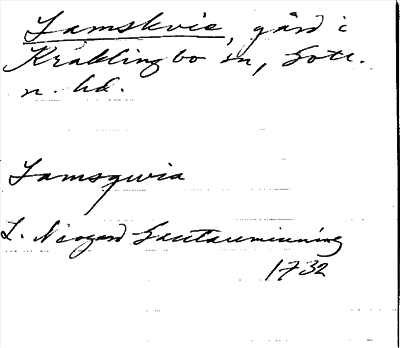 Lamskvie, gård i
Kräklingbo sn, Gotl.
n. hd.
Lamsqwia
L. Neogard Gautauminning
1732